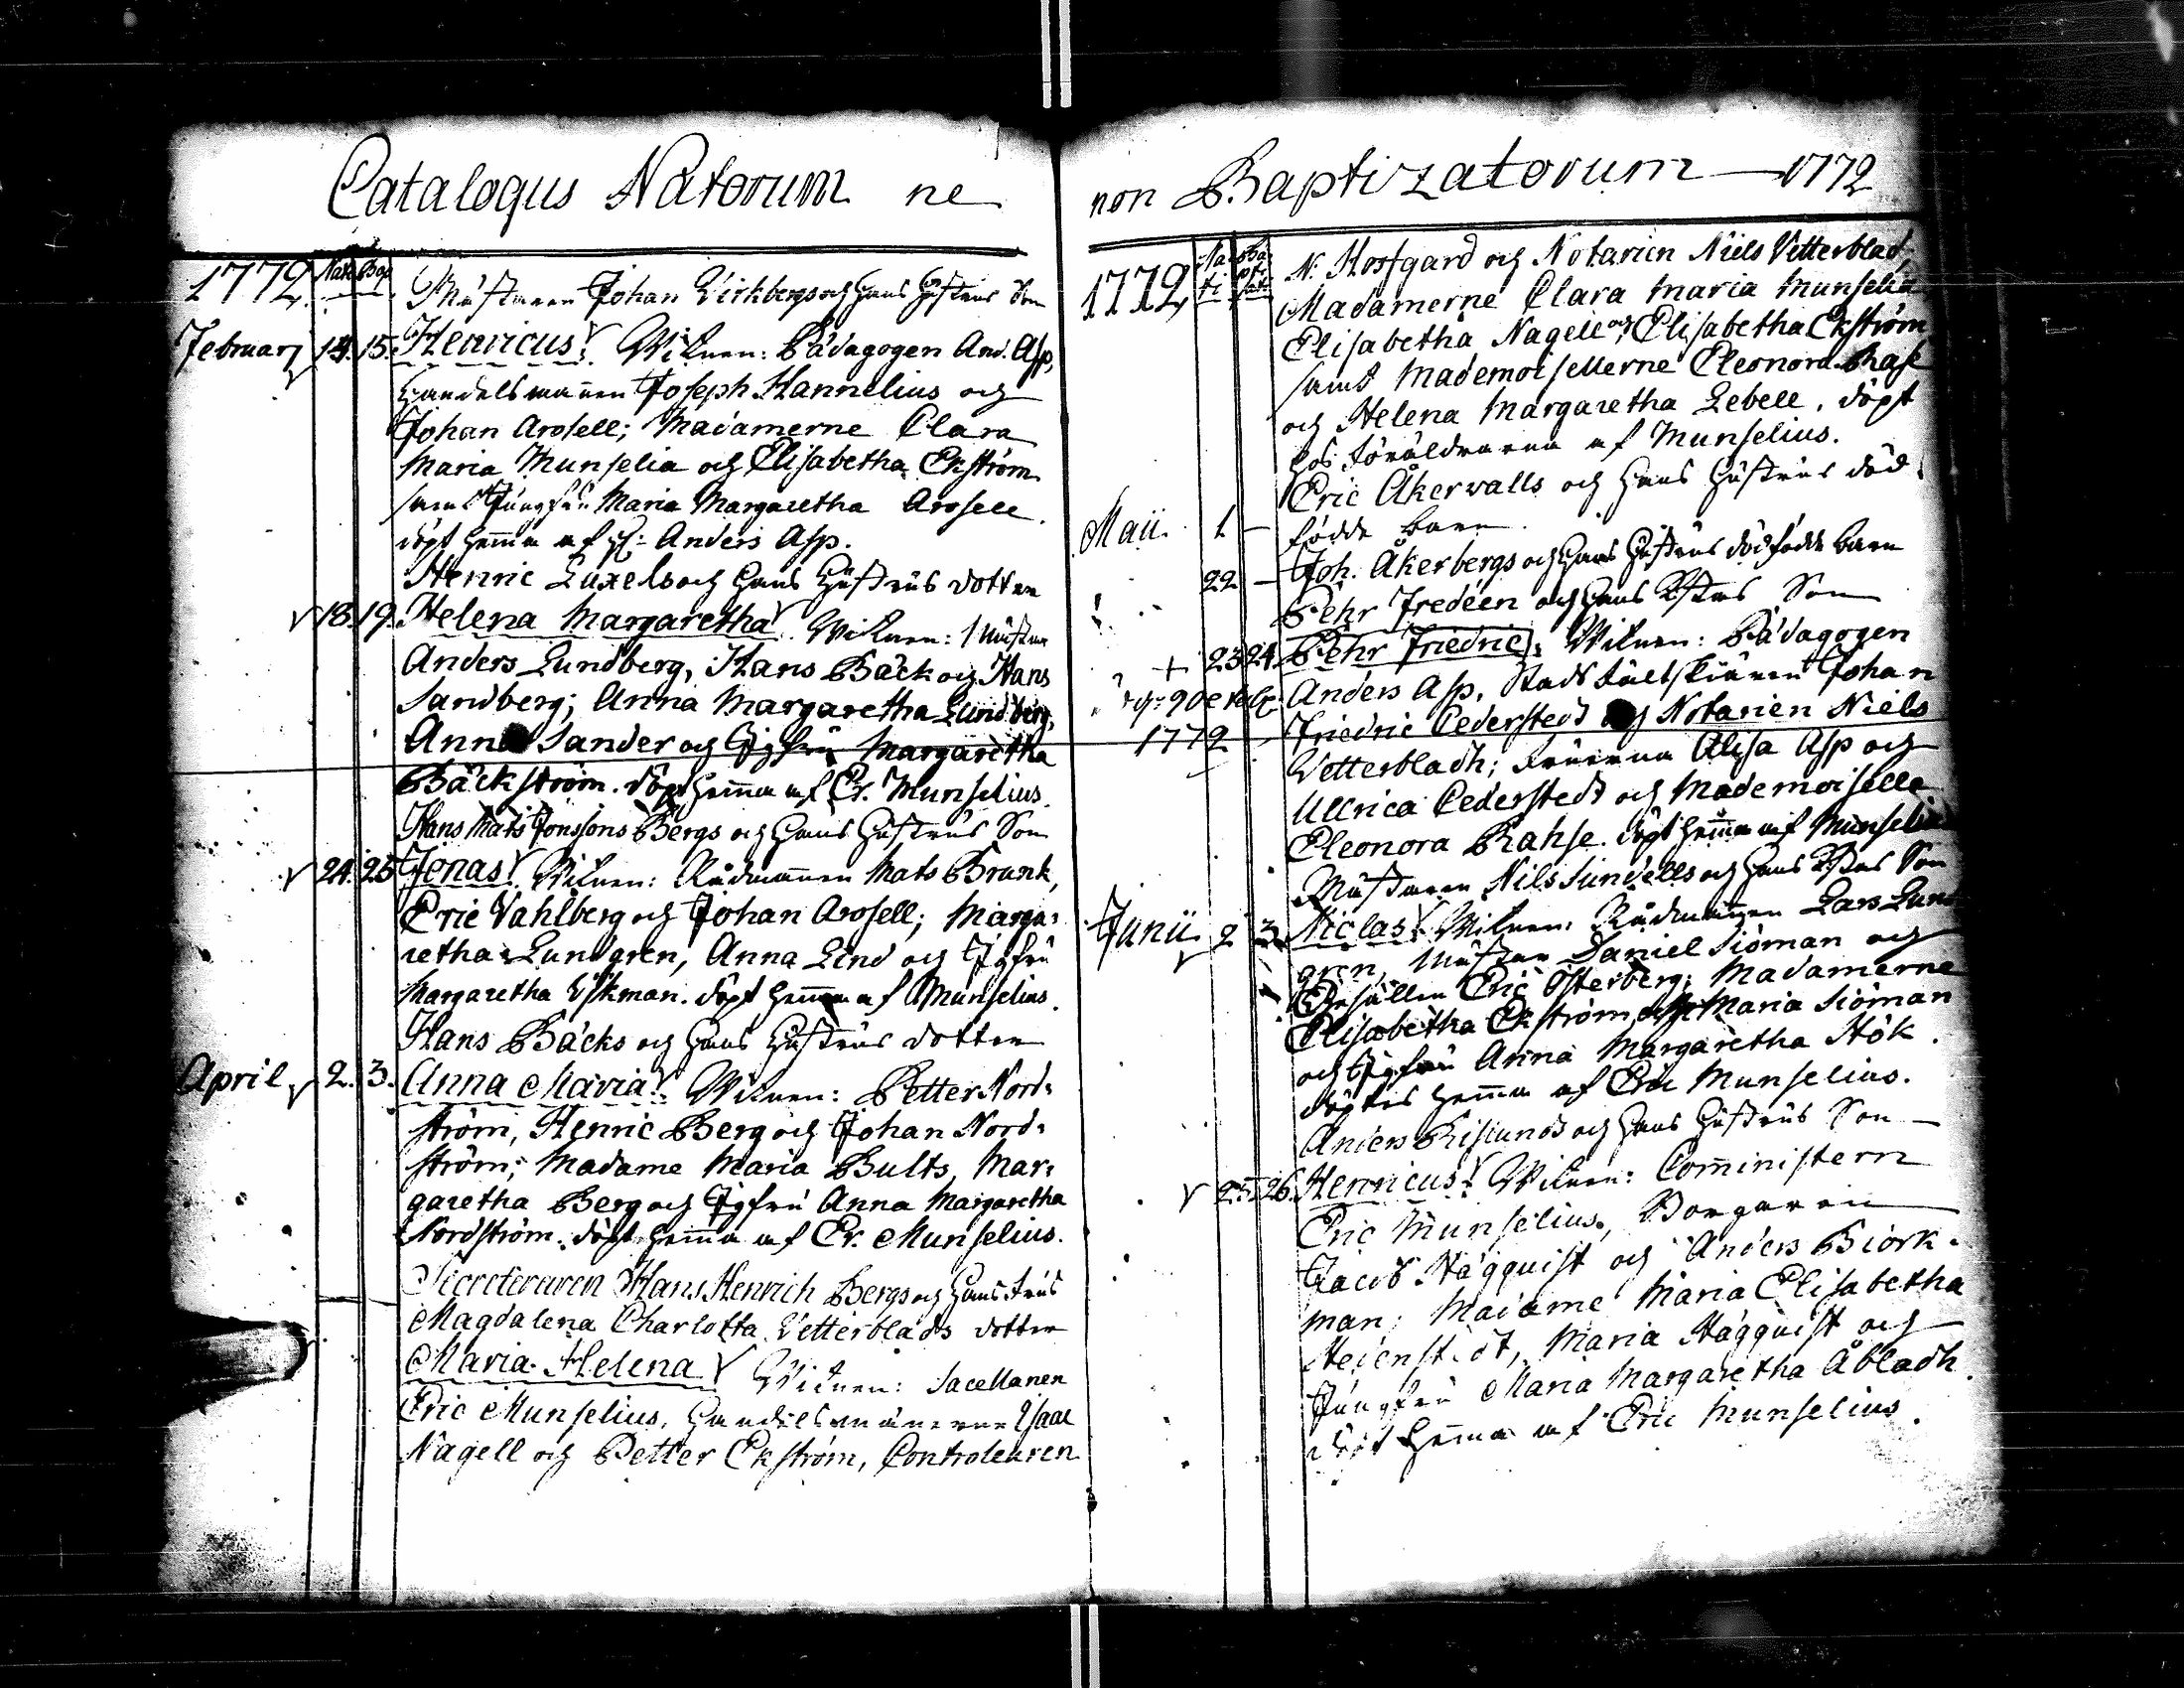 Catalogus Natorum ne
1772. Nati Bap
Mästaren Johan Virkbergs och hans hustrus Son
Februarj 14. 15. Henricus. Witnen: Pädagogen And. Asp,
handelsmannen Joseph Hannelius och
Johan Arosell; Madamerne Clara
Maria Munselia och Elisabetha Ekström
samt Jungfru Maria Margaretha Arosell.
döpt hemma af H: Anders Asp.
Henric Luxels och hans hustrus dotter
18. 19. Helena Margaretha. Witnen: Mästar
Anders Lundberg, Hans Bäck och Hans
Sandberg; Anna Margaretha Lundberg,
Anna Sander och Jgfru Margaretha
Bäckström. döpt hemma af Er. Munselius.
Hans Mats Jonssons Bergs och hans hustrus Son
24. 25 Jonas. Witnen: Rådmannen Mats Brunk,
Eric Vahlberg och Johan Arosell; Marga:
retha Lundgren, Anna Lind och Jgfru
Margaretha Eskman. döpt hemma af Munselius.
Hans Bäcks och hans hustrus dotter
April 2. 3. Anna Maria. Witnen: Petter Nord:
ström, Henric Berg och Johan Nord:
ström; Madame Maria Bults, Mar:
garetha Berg och Jgfru Anna Margaretha
Nordström. döpt hemma af Er. Munselius.
Secreteraren Hans Henrich Bergs och hans frus
Magdalena Charlotta Vetterblads dotter
Maria Helena Witnen: Sacellanen
Eric Munselius, handelsmännerne Isaac
Nagell och Petter Ekström, Controleuren
non Baptizatorum — 1772
1772 Na ti Ba pti sati
N. Hosfgard och Notarien Niels Vetterblad,
Madamerne Clara Maria Munselia
Elisabetha Nagell och Elisabetha Ekström
samt Mademoisellerne Eleonora Rahse
och Helena Margaretha Lebell. döpt
hos föräldrarna af Munselius.
Eric Åkervalls och hans hustrus död
Maii. 1 — födde barn.
22 — Joh. Åkerbergs och hans hustrus dödfödde barn
Pehr Fredéen och hans Son
+ 23 24. Pehr Friedric. Witnen: Pädagogen
Anders Asp, Stads fältskiären Johan
1772 Friedric Cederstedt och Notarien Niels
Vetterbladh; fruerna Alisa Asp och
Ullrica Cederstedt och Mademoiselle
Eleonora Rahse. döpt hemma af Munselius
Mästaren Nils Sundells och hans Son
Junii 2 3. Niclas. Witnen: Rådmannen Lars Lund
gren, Mästar Daniel Siöman och
Gesällen Eric Österberg; Madamerne
Elisabetha Ekström, Maria Siöman
och Jgfru Anna Margaretha Hök.
döptes hemma af Eric Munselius.
Anders Risiunds och hans hustrus Son —
25. 26. Henricus. Witnen: Comministern
Eric Munselius, Borgaren
Jacob Hägquist och Anders Biörk-
man; Madame Maria Elisabetha
Hedenstedt, Maria Hägquist och
Jungfru Maria Margaretha Åbladh.
döpt hemma af Eric Munselius.